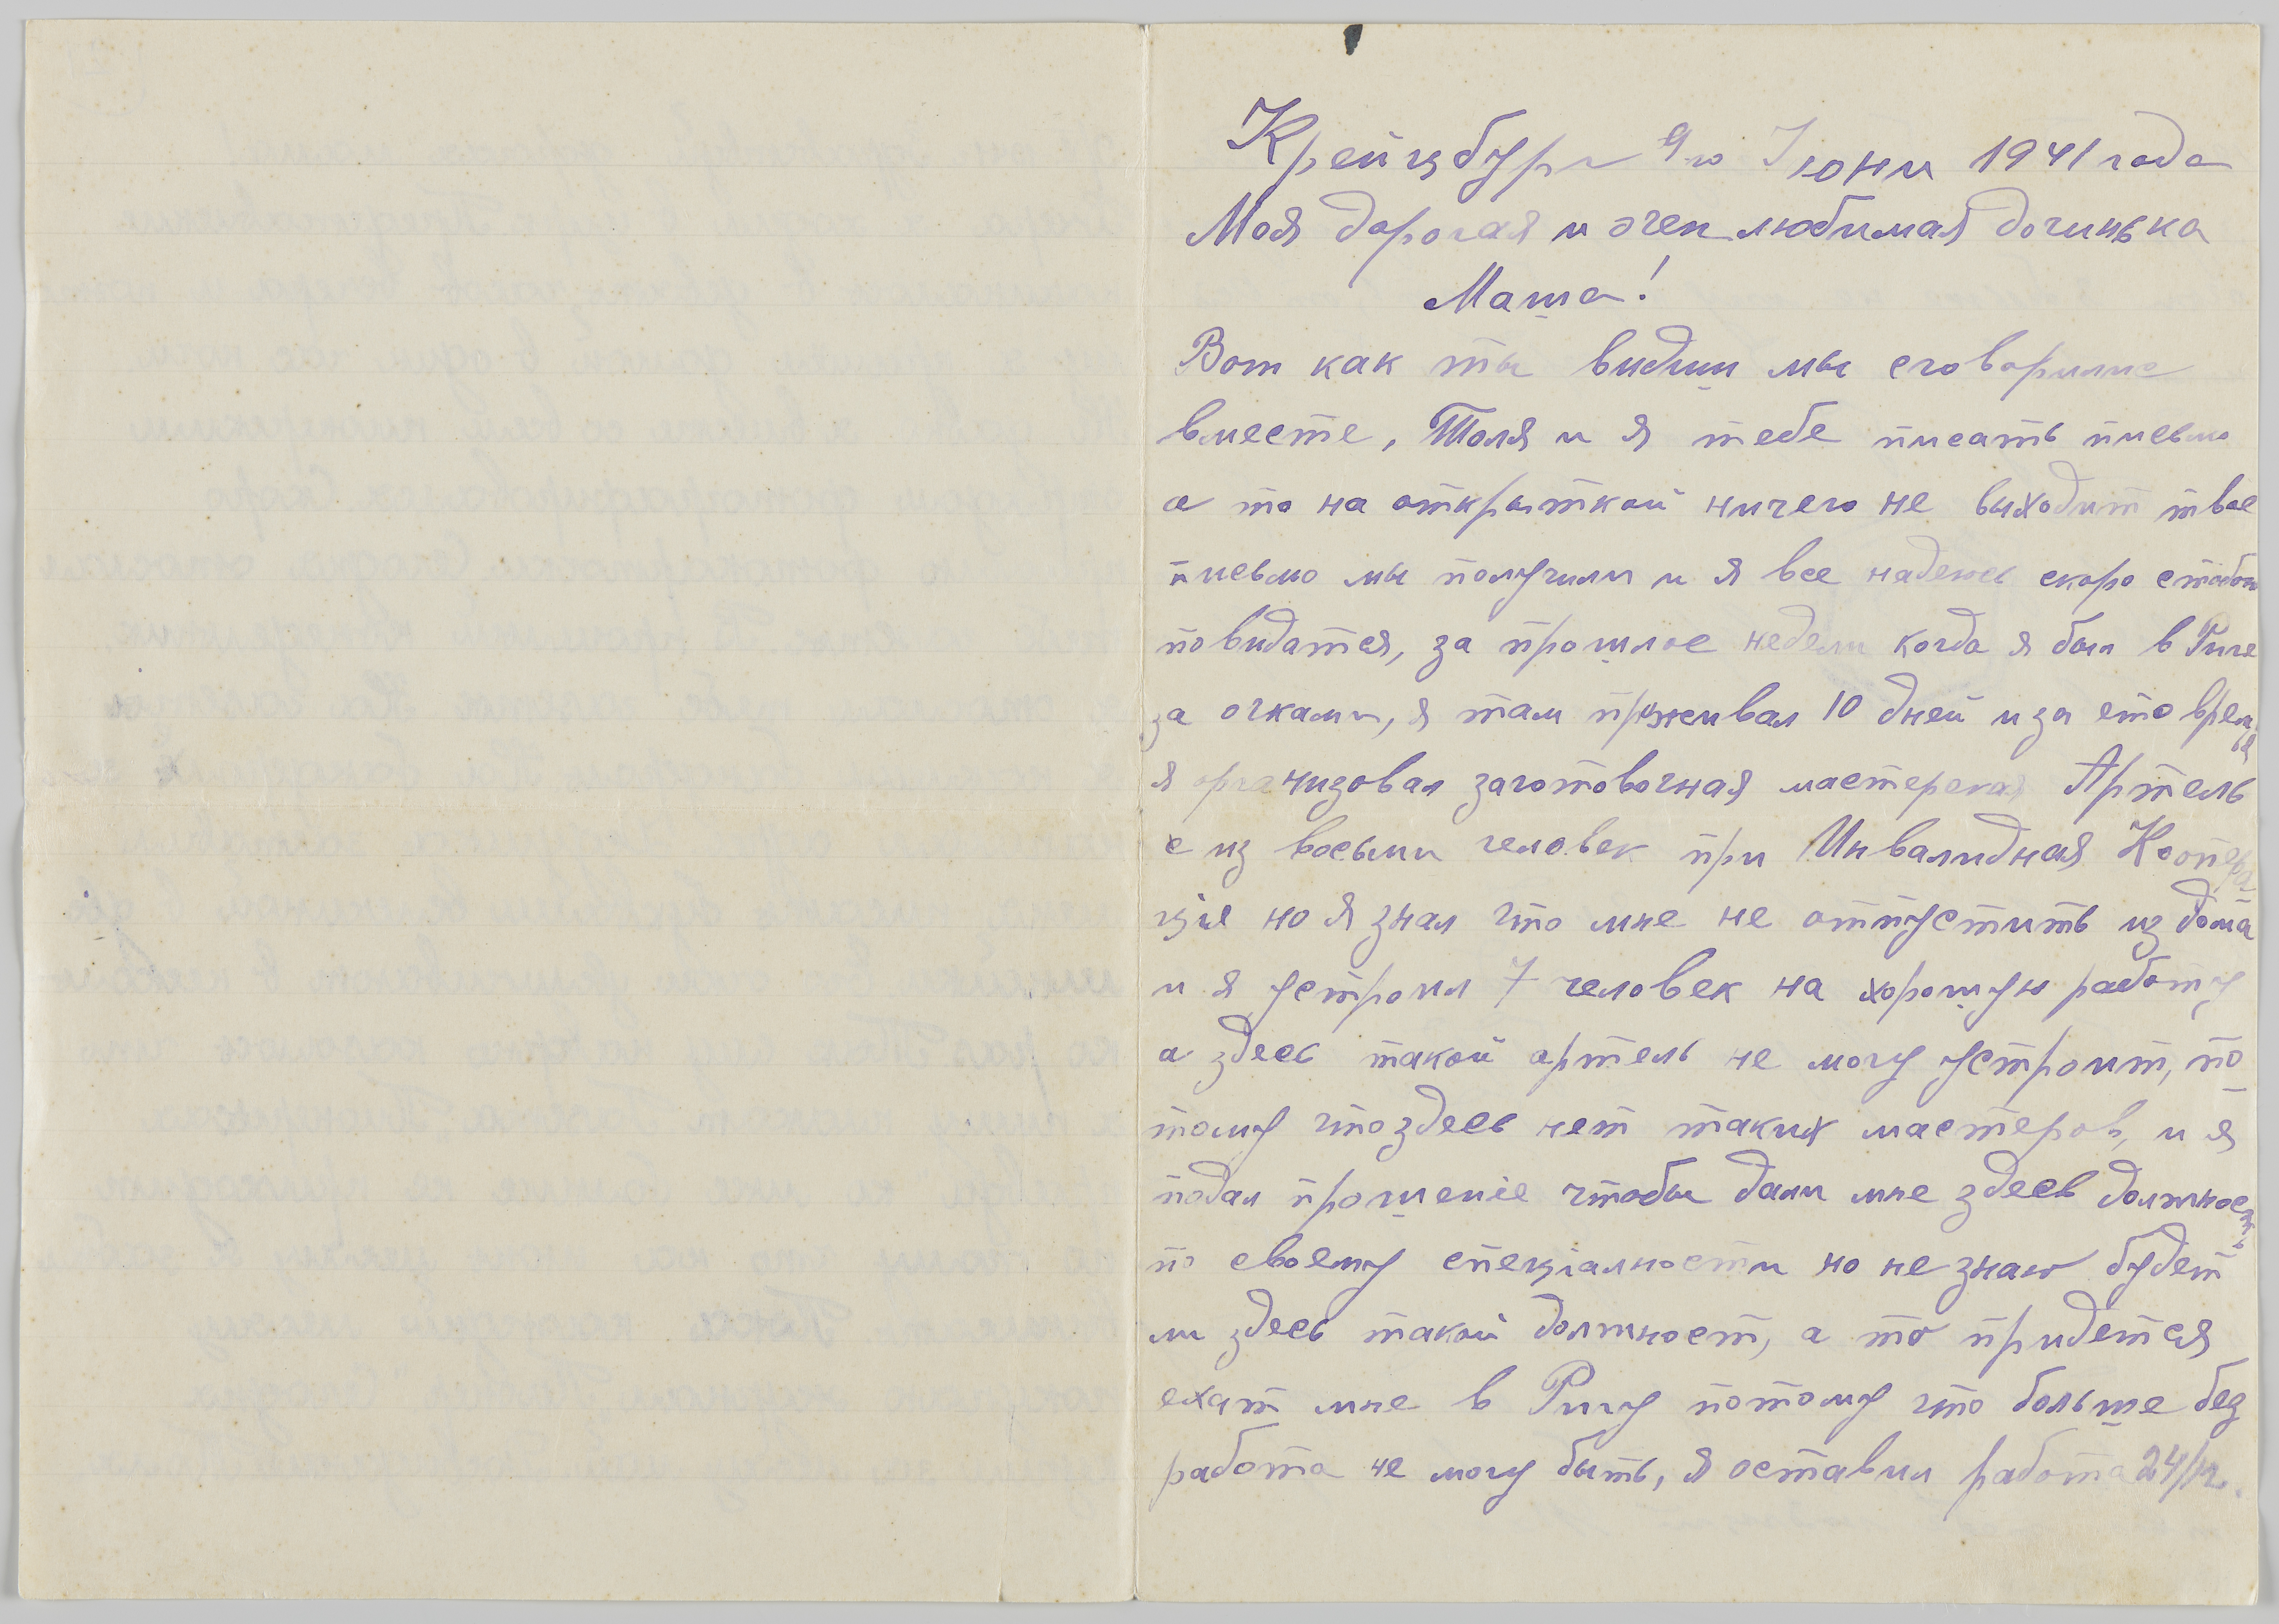 Крейцбург 9го Июни 1941 года
Моя дорогая и очен любимая дочинька
Маша!
Вот как ты видиш мы сговорилис
вместе, Толя и я тебе писать письмо
а то на открыткой ничего не выходит твое
письмо мы получили и я все надеюсь скоро стобои
повидатся, за прошлое недели когда я был в Риге
за очками, я там проживал 10 дней и за ето время
я организовал заготовочная мастерская Артель
с из восьми человек при Инвалидная Коопера-
цiе но я знал что мне не отпустить из дома
и я устроил 7 человек на хорошую работу
а здесь такой артель не могу устроит, по-
тому что здесь нет таких мастеров, и я
подал прошенiе чтобы дали мне здесь должность
по своему специалности но не знаю будет
ли здесь такой должност, а то придется
ехат мне в Ригу потому что больше без
работа не могу быть, я оставил работа 24/IV.